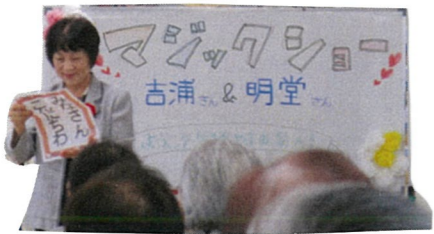 マジックショー
吉浦さん & 明堂さん
みなさん
こんにちわ